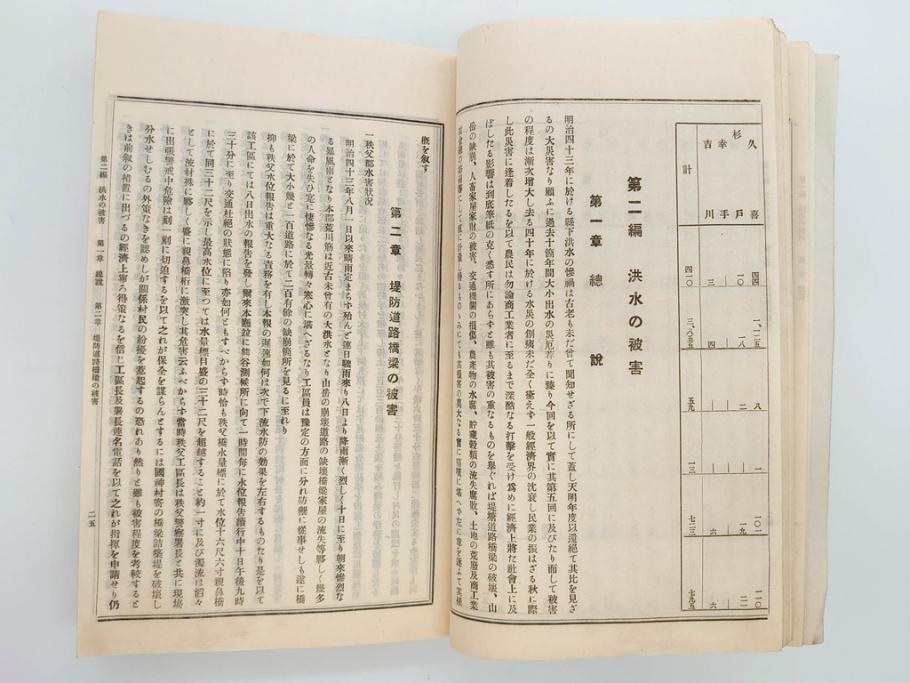 久喜 四四 一、一二五 八 一 一〇一 一一〇
杉戸 一〇 一八 二 一 一九 二一
幸手 一 一 一 一 一 一
吉川 三 四 一 一 六 六
計 四一〇 三、八三五 五九 一三 七三三 七九五
第二編 洪水の被害
第一章 總說
明治四十三年に於ける縣下洪水の慘禍は古老も未だ曾て聞知せざる所にして蓋し天明年度以還絕て其比を見ざ
るの大災害なり顧ふに過去十箇年間大小出水の災厄若りに臻り今回を以て實に其第五回に及びたり而して被害
の程度は漸次增大し去る四十年に於ける水災の創痍未だ全く癒えず一般經濟界の沈衰し民業の振はざる秋に際
し此災害に逢着したるを以て農民は勿論商工業者に至るまで深酷なる打擊を受け爲めに經濟上將た社會上に及
ぼしたる影響は到底筆紙の克く悉す所にあらずと雖も其被害の重なるものを擧ぐれば堤塘道路橋梁の破壞、山
岳の缺崩、人畜家屋家財の被害、交通機關の損傷、農產物の水腐、貯藏穀類の流失腐敗、土地の荒廢及商工業
槪を叙す
第二章 堤防道路橋梁の被害
一秩父郡水害狀況
明治四十三年八月一日以來晴雨定まらず殆んど連日驟雨來り八日より降雨漸く烈しく十日に至り朝來慘烈な
る暴風雨となり本郡荒川筋は近古未曾有の大洪水となり山岳の崩壞道路の缺壞橋梁家屋の流失等夥しく幾多
の人命を失ひ定に悽慘なる光景轉々寒心に堪へざるなり工區員は豫定の方面に分れ防禦に從事せしも遂に橋
梁に於て大小幾と一百道路に於て二百有餘の缺崩箇所を見るに至れり
抑も秩父水位報告は重大なる責務を有し本報の遲速如何は次で下流水防の効果を左右するものたり是を以て
該工區にては八日出水の報告を發し爾來本廳並に熊谷測候所に向て一時間每に水位報告續行中十日午後九時
三十分に至り交通杜絕の狀態に陷り亦如何ともすべからず時恰も秩父橋水量標に於て水位十六尺六寸親鼻橋
に於て同三十二尺を示し最高水位に至つては水量標目盛の三十二尺を超越すること約一寸に及び濁流は滔々
として流材殊に夥しく盛に親鼻橋桁に激突し其危害云ふべからず當時秩父工區長は秩父警察署長と共に現場
に出張警戒中危險は刻一刻に切迫するを以て之れが保全を謀らんとするには國神村寄の橋梁詰築堤を破壞し
分水せしむるの外策なきを認めしが關係村民の紛擾を惹起するの恐れあり然りと雖も被害程度を考較すると
きは前叙の措置に出づるの經濟上寧ろ得策なるを信じ工區長及署長連名電話を以て之れが指揮を申請せり仍
第二編 洪水の被害 第一章 總說 第二章 堤防道路橋梁の被害
二五